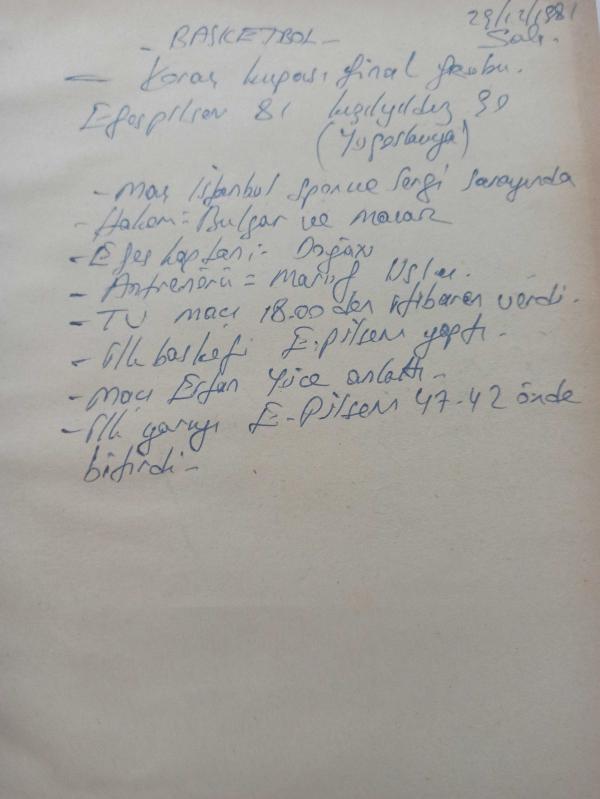 29/12/1981
Salı.
- BASKETBOL -
- Koraç kupası final grubu.
Efespilsen 81 kızılyıldız 90
(Yugoslavya)
- Maç İstanbul Spor ve Sergi Sarayında
- Hakem = Bulgar ve macar
- Efes kaptanı :- Doğan
- Antrenörü = Maruf Uslu.
- TV maçı 18.00 den itibaren verdi.
- İlk basketi E.pilsen yaptı.
- Maçı Ertan Yüce anlattı.
- İlk yarıyı E-Pilsen 47-42 önde
bitirdi -